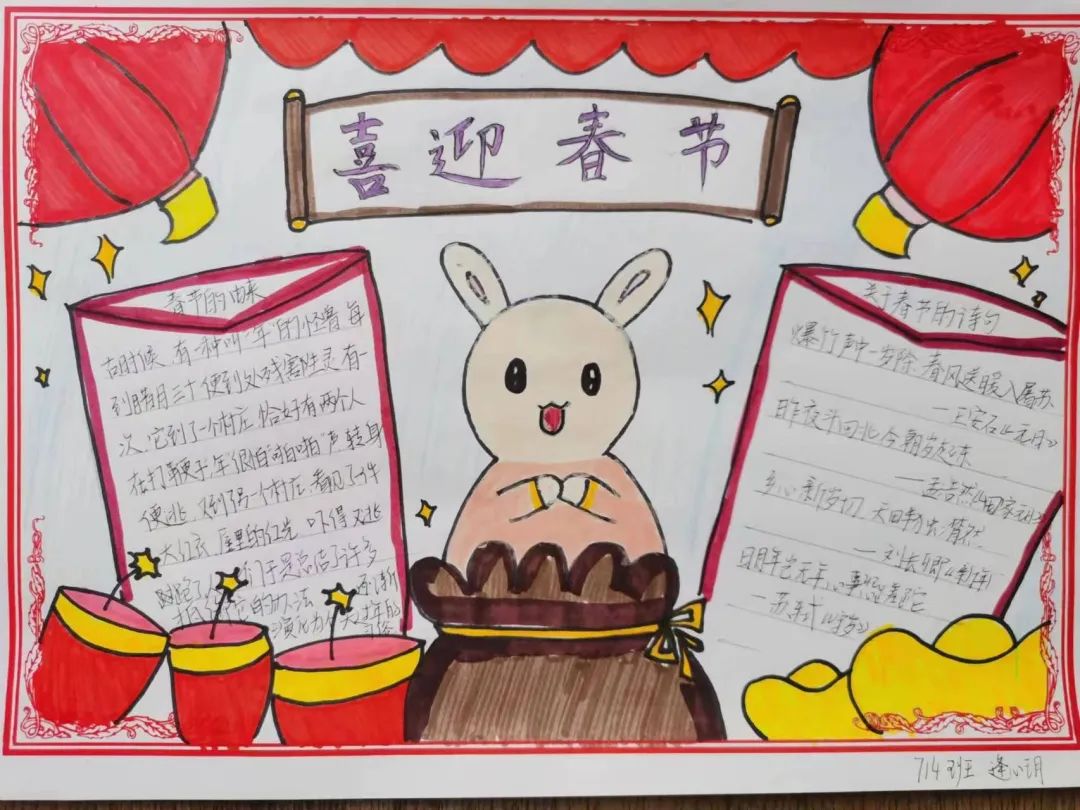 喜迎春节
春节的由来
古时候,有一种叫"年"的怪兽,每
到腊月三十,便到处残害牲灵,有一
次,它到了一个村庄,恰好有两个人
在打鞭子,"年"很怕"啪啪"声,转身
便逃,又到另一个村庄,看见了一件
大红衣,屋里的灯光,吓得又逃
跑了 们于是总结了许多
它的办法 还渐
演化为今天过年的
习俗
关于春节的诗句
爆竹声中一岁除,春风送暖入屠苏
—王安石《元日》
昨夜斗回北,今朝岁起东
—孟浩然《田家元日》
乡心新岁切,天畔独潸然
—刘长卿《新年
明年岂无年,心事恐蹉跎
—苏轼《守岁》
714班 逄 玥